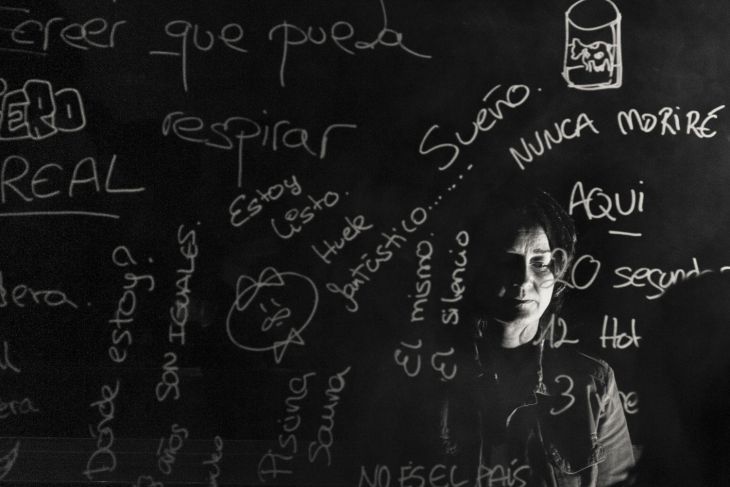 creer que pueda
respirar
PERO
REAL
Sueño.
NUNCA MORIRÉ
AQUI
20
12 Hot
3
Estoy
listo.
Huele
fantástico......
El mismo.
El silencio
Dónde estoy?
años SON IGUALES.
Piscina
Sauna
NO ES EL PAÍS